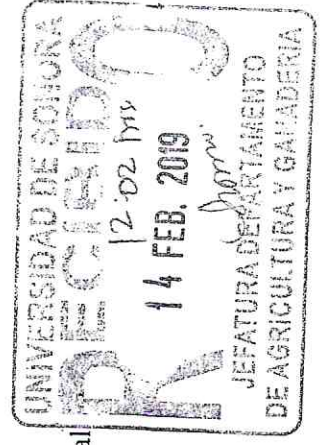 UNIVERSIDAD DE SONORA
RECIBIDO
12:02 hrs
14 FEB. 2019
JEFATURA DEPARTAMENTO
DE AGRICULTURA Y GANADERIA
al